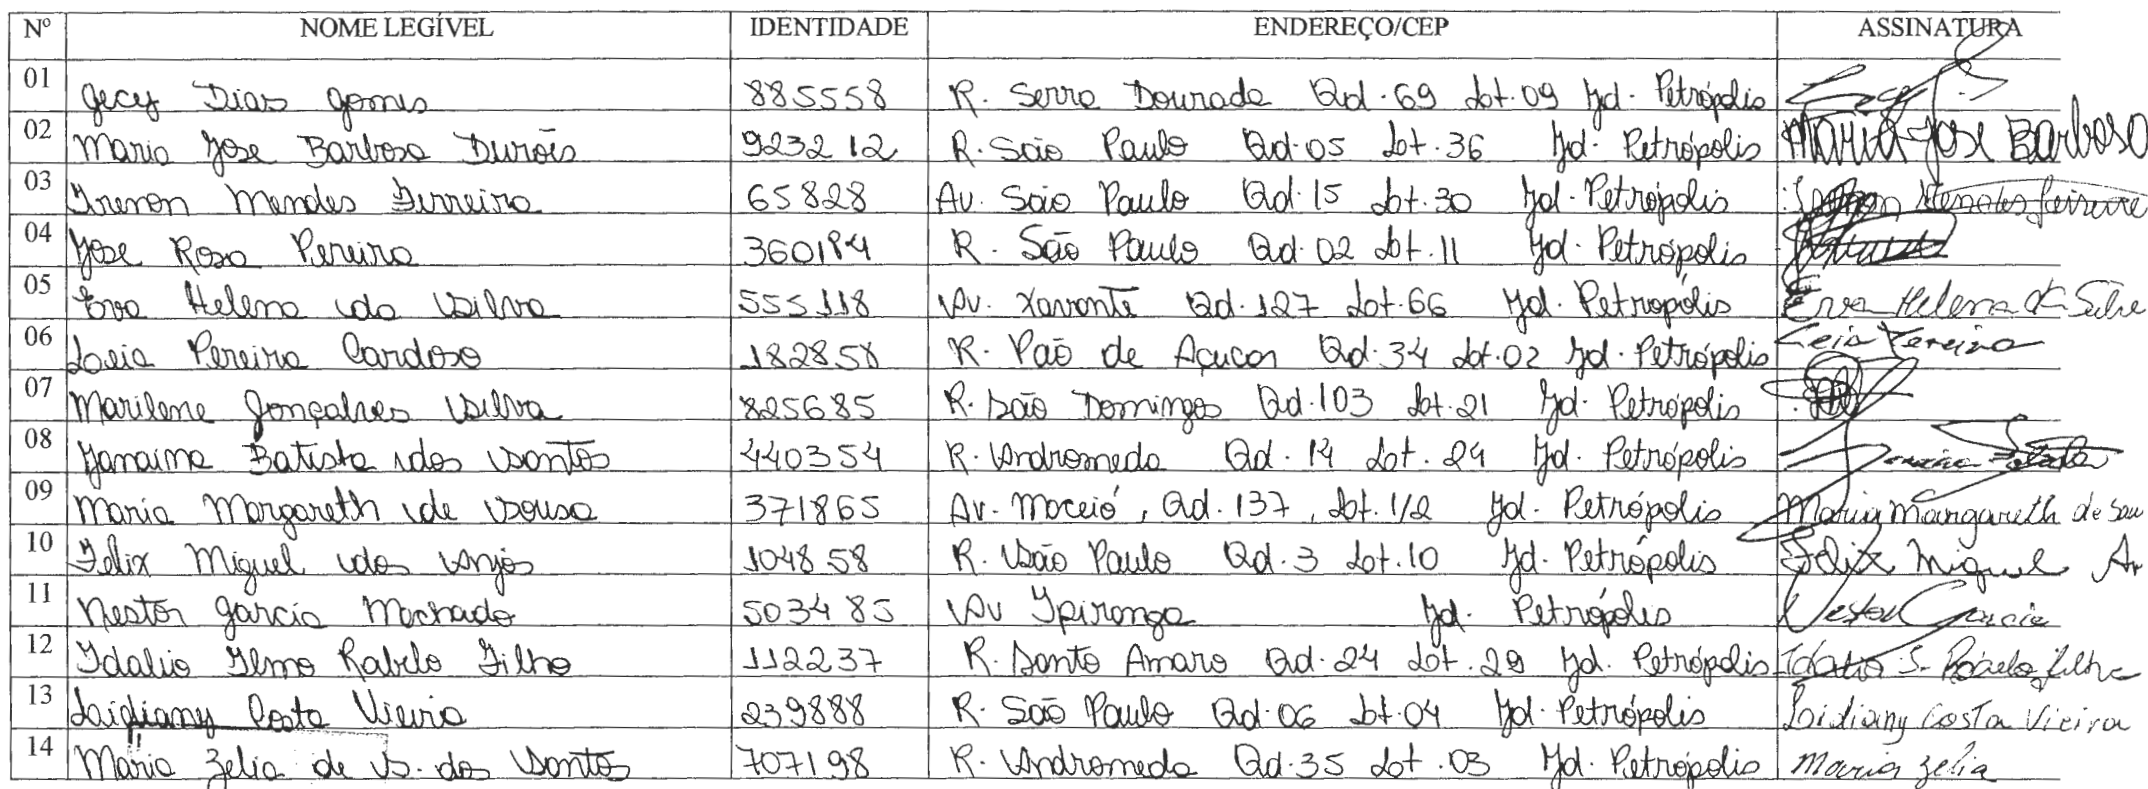 Nº NOME LEGÍVEL IDENTIDADE ENDEREÇO/CEP ASSINATURA
01 Gecy Dias Gomes 885558 R. Serra Dourada Qd. 69 Lot. 09 Jd. Petrópolis
02 Maria Jose Barbosa Durões 923212 R. São Paulo Qd. 05 Lot. 36 Jd. Petrópolis Maria Jose Barbosa
03 Irenon Mendes Ferreira 65828 Av. São Paulo Qd. 15 Lot. 30 Jd. Petrópolis Mendes Ferreira
04 Jose Rosa Pereira 360184 R. São Paulo Qd. 02 Lot. 11 Jd. Petrópolis
05 Eva Helena da Silva 555118 Av. Xavante Qd. 127 Lot. 66 Jd. Petropólis Eva Helena da Silva
06 Leia Pereira Cardoso 182858 R. Paõ de Açucar Qd. 34 Lot. 02 Jd. Petrópolis Leia Pereira
07 Marilene Gonçalves Silva 825685 R. São Domingos Qd. 103 Lot. 21 Jd. Petrópolis
08 Janaina Batista dos Santos 440354 R. Andromeda Qd. 14 Lot. 24 Jd. Petrópolis
09 Maria Margareth de Sousa 371865 Av. Maceió, Qd. 137, Lot. 1/2 Jd. Petrópolis Maria Margareth de Sou
10 Felix Miguel dos Anjos 104858 R. São Paulo Qd. 3 Lot. 10 Jd. Petrópolis Felix Miguel
11 Nestor Garcia Machado 503485 Av Ipiranga Jd. Petrópolis Nestor Garcia
12 Idalio Ilmo Rabelo Filho 112237 R. Santo Amaro Qd. 24 Lot. 29 Jd. Petrópolis Idalio S. Rabelo filho
13 Laidiany Costa Vieira 239888 R. São Paulo Qd. 06 Lot. 04 Jd. Petrópolis Laidiany Costa Vieira
14 Maria Zelia de S. dos Santos 707198 R. Andromeda Qd. 35 Lot. 03 Jd. Petrópolis Maria Zelia